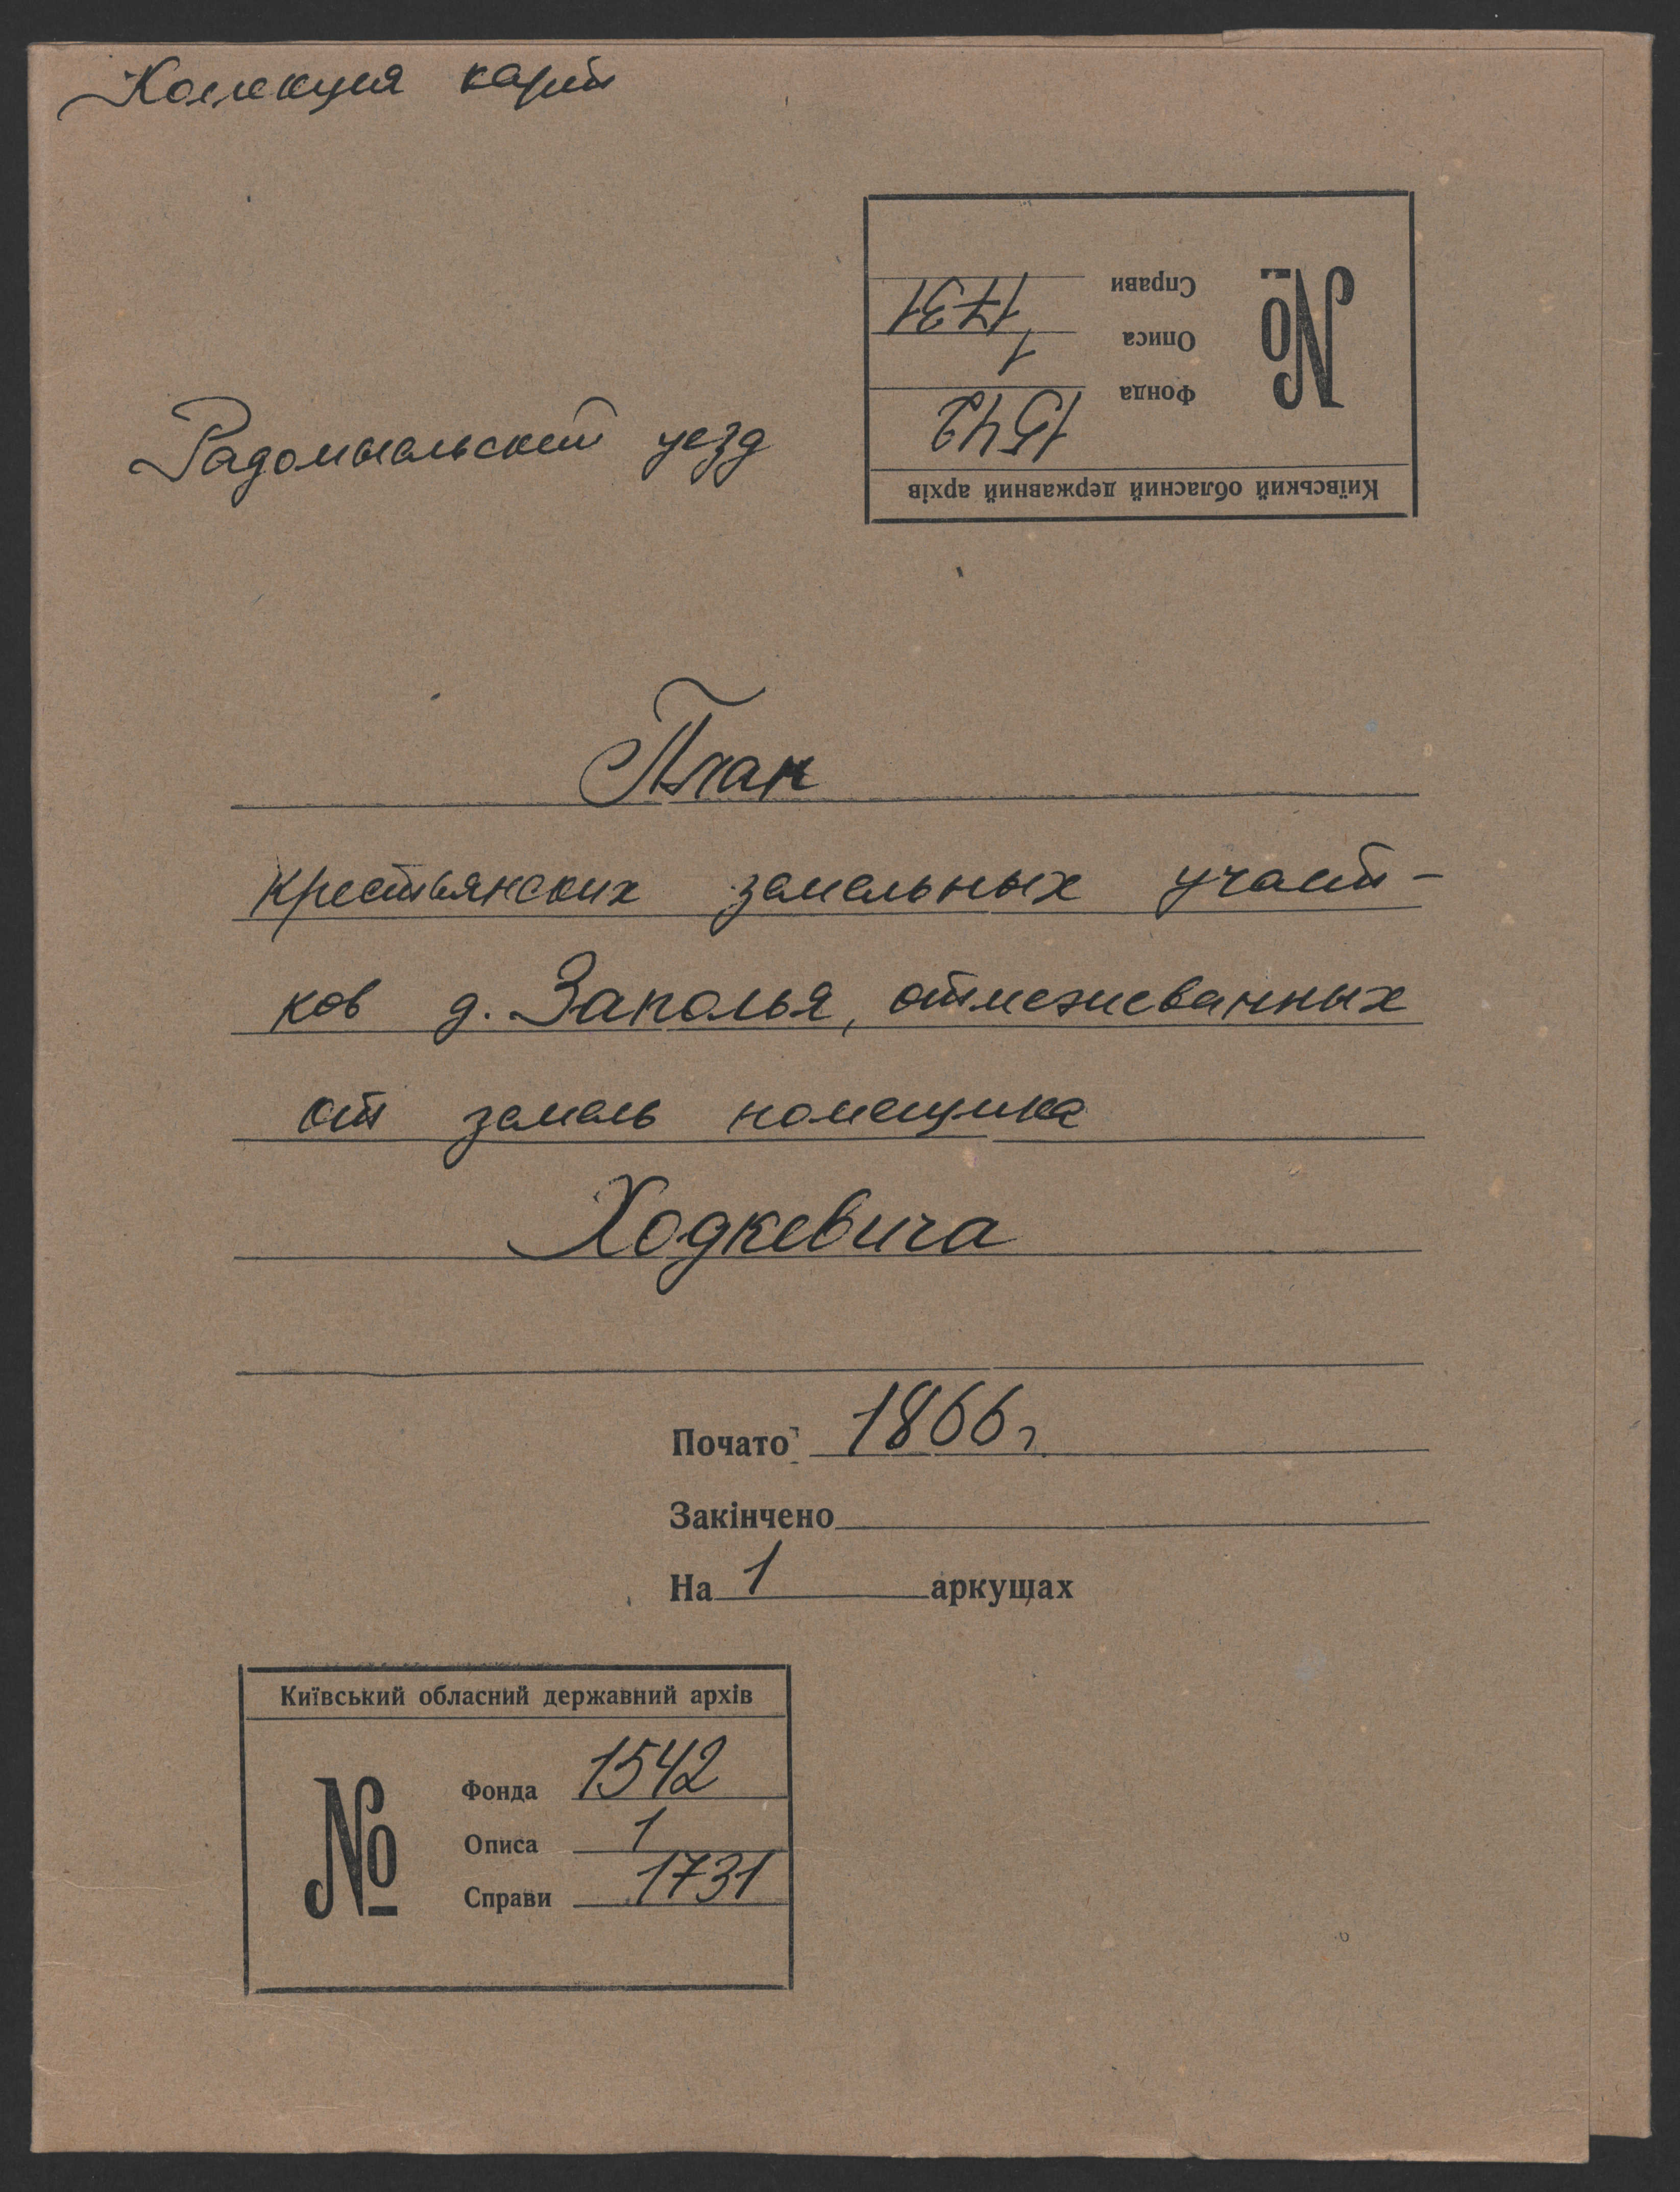 Колекция карт
Справи 1731
Описа 1
Фонда 1542
№
Київський обласний державний архів
Радомысльский уезд
План
крестьянских земельных участ-
ков д. Заполья, отмежеванных
от земель помещика
Ходкевича
Почато 1866 г.
Закінчено
На 1 аркущах
Київський обласний державний архів
№
Фонда 1542
Описа 1
Справи 1731